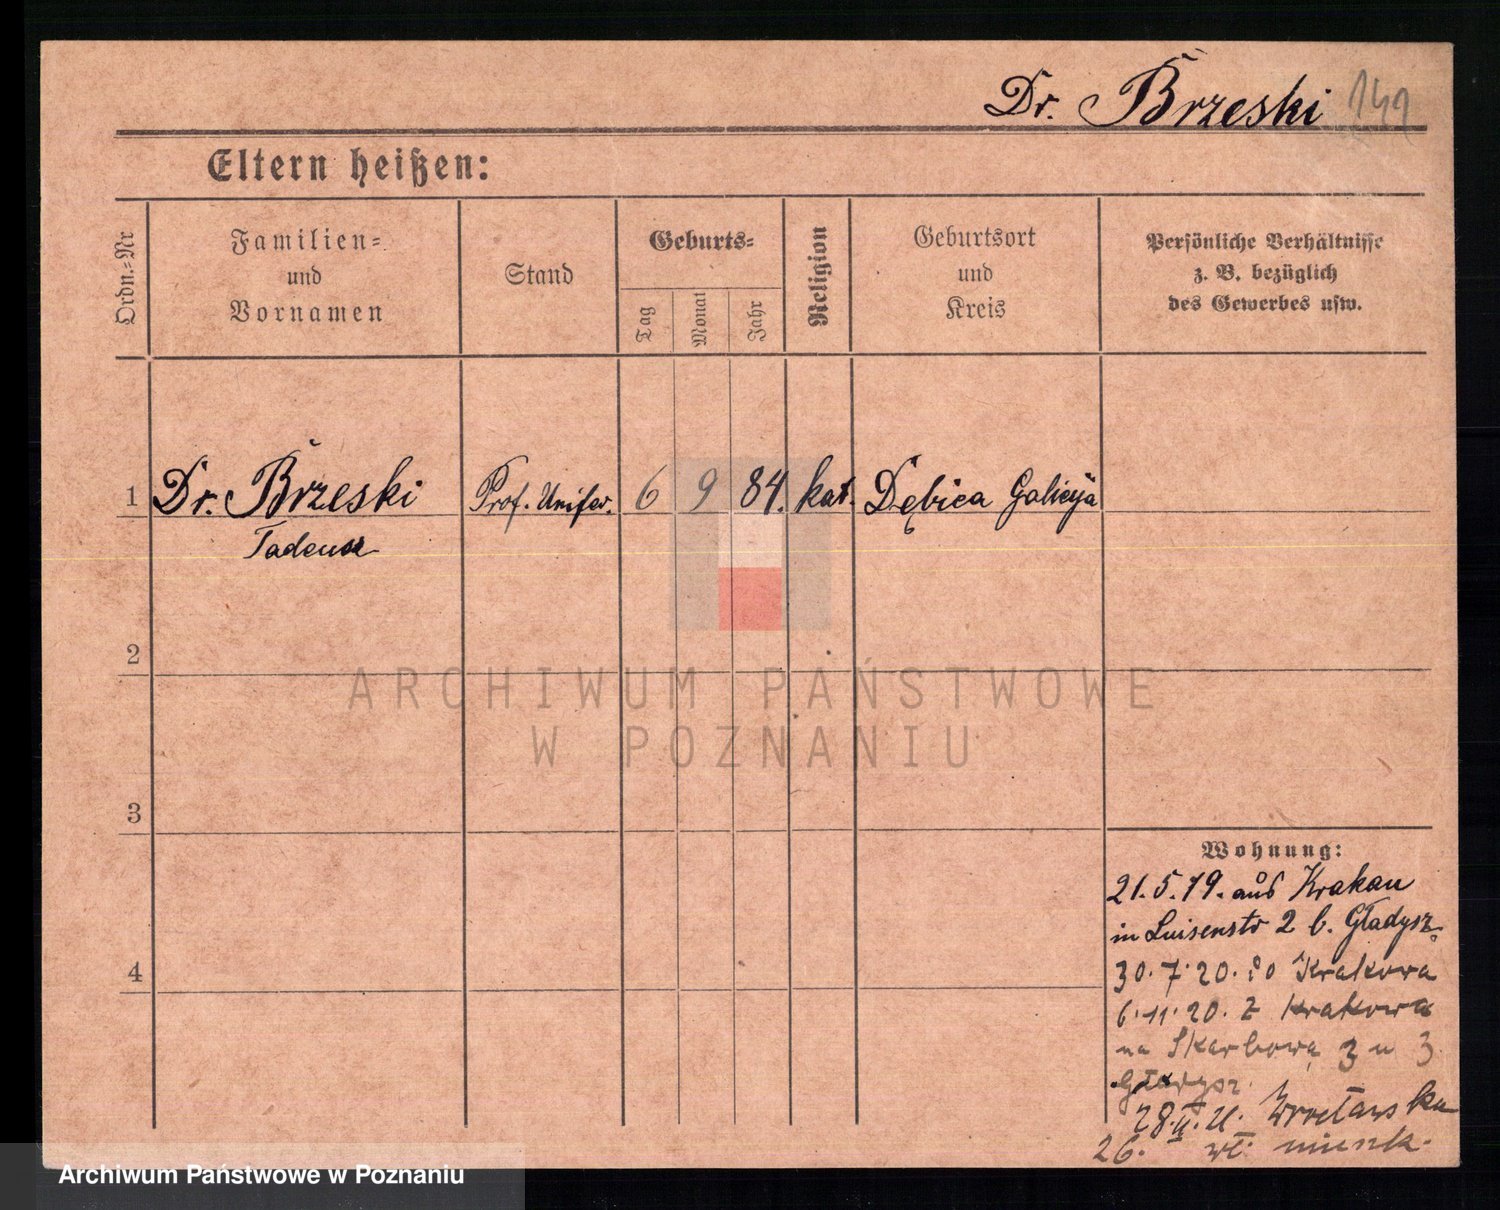 Dr. Brzeski 142
Eltern heißen:
Ordn.=Nr
Familien=
und
Vornamen
Stand
Geburts=
Tag
Monat
Jahr
Religion
Geburtsort
und
Kreis
Persönliche Verhältnisse
z. B. bezüglich
des Gewerbes usw.
1 Dr. Brzeski Prof. Unifer. 6 9 84. kat. Dębica Galicya
Tadeusz
2
3
4
ARCHIWUM PAŃSTWOWE
W POZNANIU
Wohnung:
21.5.19. aus Krakau
in Luisenstr 2 b. Gładysz.
30.7.20. do Krakowa
6.11.20. z Krakowa
na Skarbową 3 u
Gładysz.
28.II.21. Wrocławska
26. wł. mieszk.
Archiwum Państwowe w Poznaniu